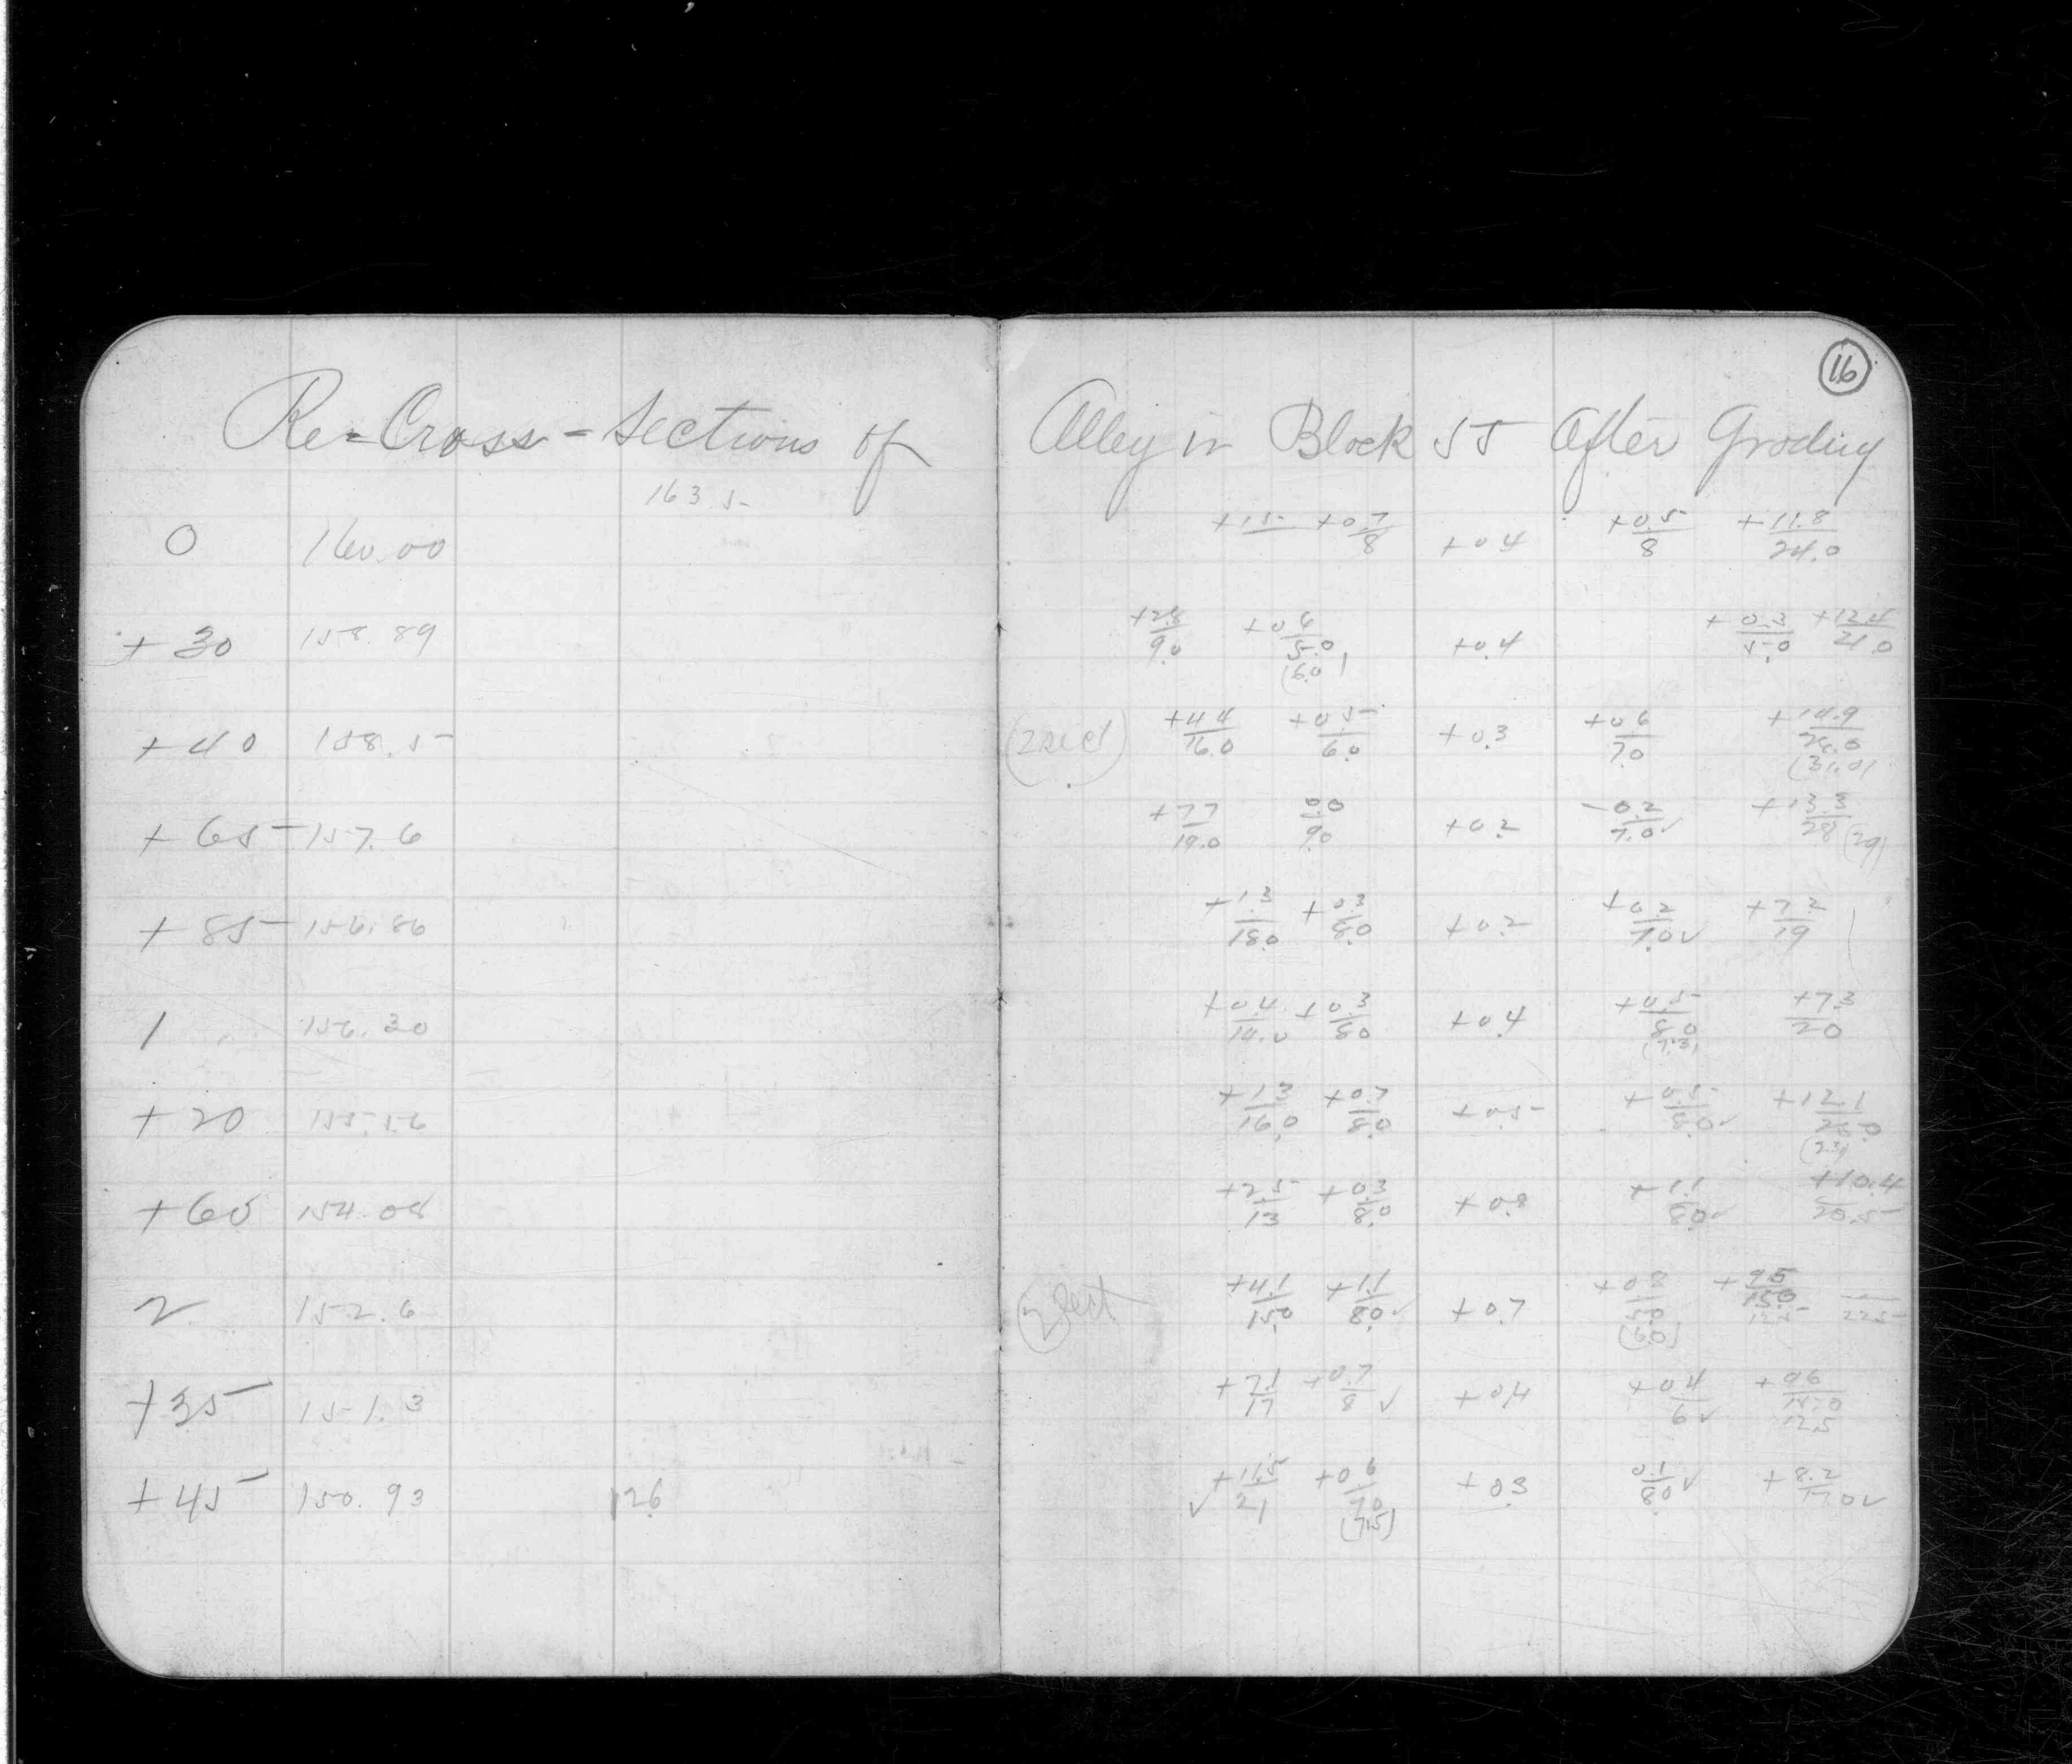 16
Re-Cross-Sections of Alley in Block 55 After Grading
163.5
0 160.00 +1.5 +0.7/8 +0.4 +0.5/8 +11.8/24.0
+30 158.89 +2.8/9.0 +0.6/5.0 (6.0) +0.4 +0.3/5.0 +12.4/21.0
+40 158.5 +4.4/16.0 +0.5/6.0 +0.3 +0.6/7.0 +14.9/28.0 (31.0)
+65 157.6 +7.7/19.0 0.0/9.0 +0.2 -0.2/7.0✓ +13.3/28 (29)
+85 156.86 +1.3/18.0 +0.3/8.0 +0.2 +0.2/7.0✓ +7.2/19
1 156.30 +0.4/14.0 +0.3/8.0 +0.4 +0.5/8.0 (7.3) +7.3/20
+20 155.56 +1.3/16.0 +0.7/8.0 +0.5 +0.5/8.0✓ +12.1 (23)
+60 154.08 +2.5/13 +0.3/8.0 +0.9 +1.1/8.0✓ +10.4/20.5
2 152.6 +4.1/15.0 +1.1/8.0✓ +0.7 +0.8/5.0 (6.0) +9.5/15.0 22.5
+35 151.3 +7.1/17 +0.7/8✓ +0.4 +0.4/6✓ +9.6/15.0 12.5
+45 150.93 126 ✓ +11.5/21 +0.6/7.0 (7.5) +0.3 0.1/8.0✓ +8.2/17.0✓